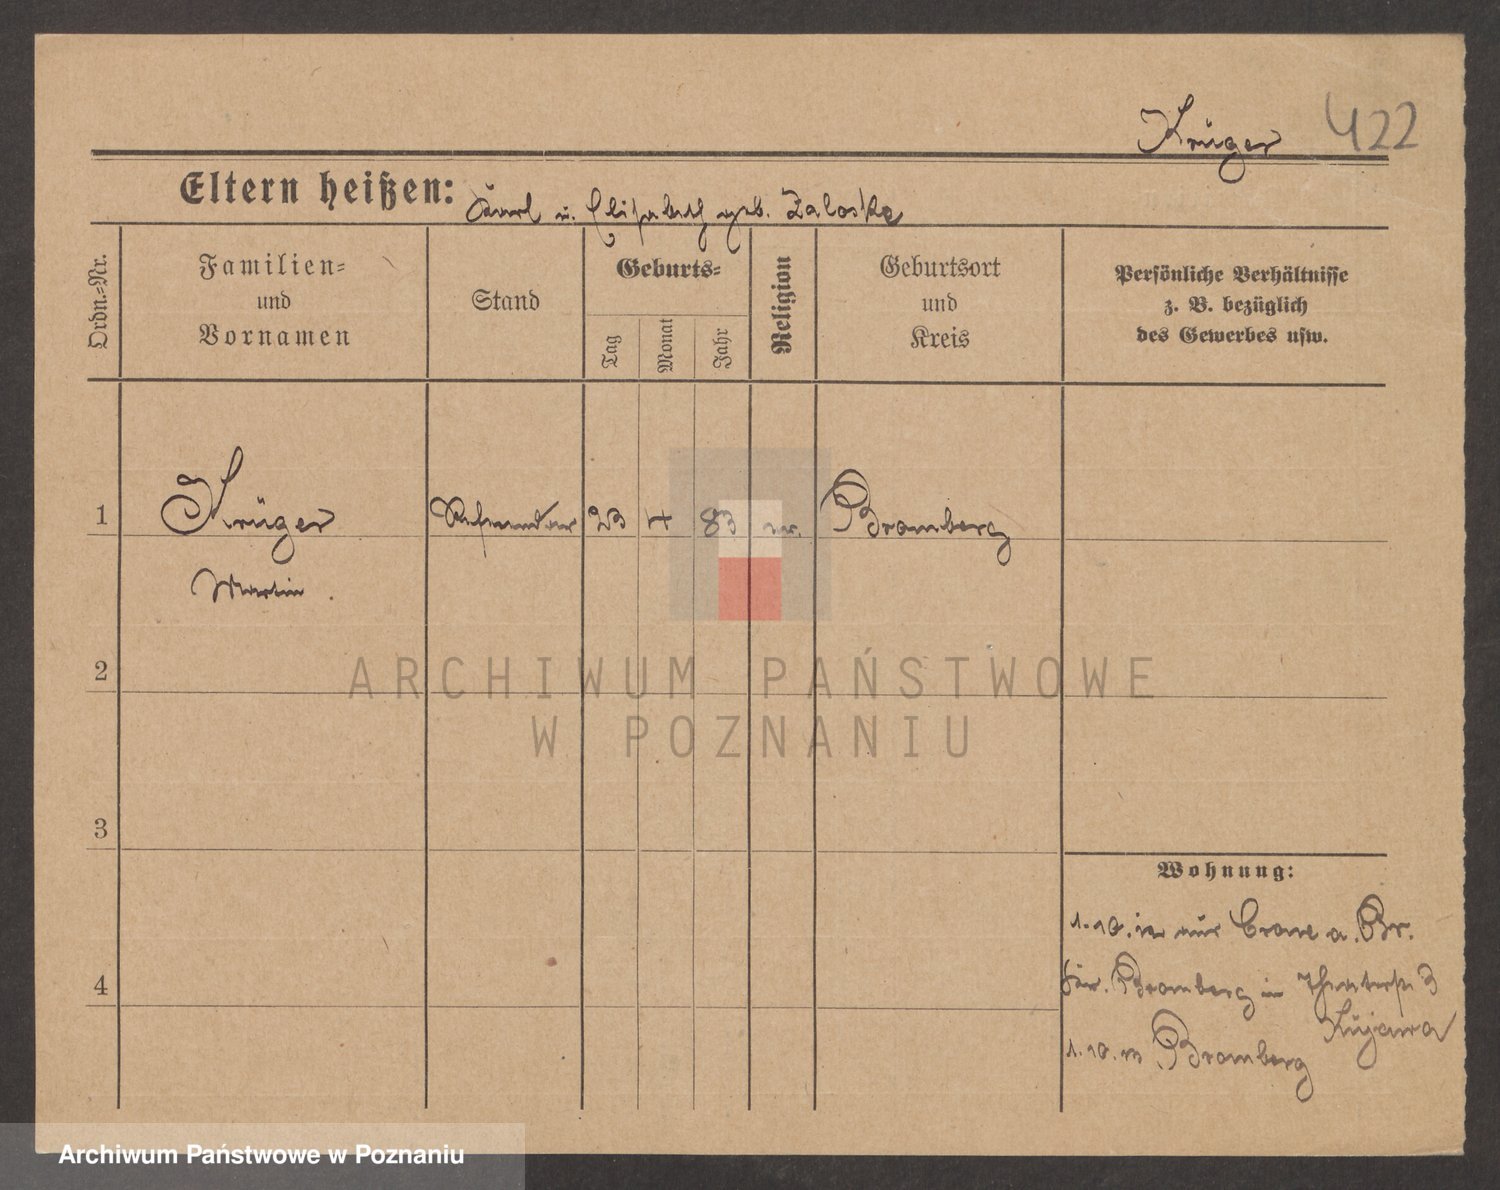 Krüger 422
Eltern heißen: Karl u. Elisabeth geb. Zaloske
Ordn.-Nr.
Familien-
und
Vornamen
Stand
Geburts-
Tag
Monat
Jahr
Religion
Geburtsort
und
Kreis
Persönliche Verhältnisse
z. B. bezüglich
des Gewerbes usw.
1 Krüger Referendar 23 4 83 ev. Bromberg
Martin
2
3
4
Wohnung:
1.10. nur Crone a. Br.
Bromberg in Theaterstr. 3
Kujawa
1.10. Bromberg
ARCHIWUM PAŃSTWOWE
W POZNANIU
Archiwum Państwowe w Poznaniu